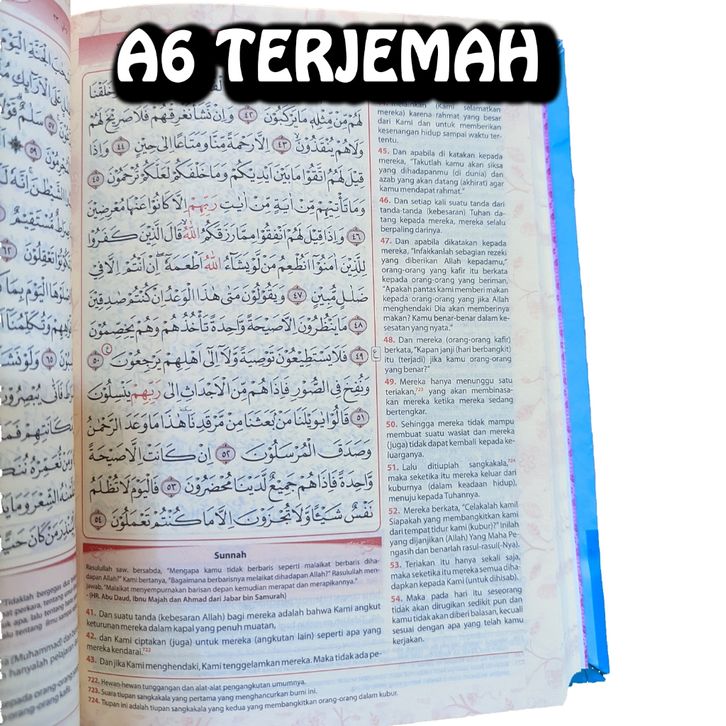 A6 TERJEMAH
لَهُمْ مِّنْ مِّثْلِهٖ مَا يَرْكَبُوْنَ ٤٢ وَاِنْ نَّشَأْ نُغْرِقْهُمْ فَلَا صَرِيْخَ لَهُمْ
وَلَاهُمْ يُنْقَذُوْنَ ٤٣ اِلَّا رَحْمَةً مِّنَّا وَمَتَاعًا اِلٰى حِيْنٍ ٤٤ وَاِذَا
قِيْلَ لَهُمُ اتَّقُوْا مَا بَيْنَ اَيْدِيْكُمْ وَمَا خَلْفَكُمْ لَعَلَّكُمْ تُرْحَمُوْنَ ٤٥
وَمَا تَأْتِيْهِمْ مِّنْ اٰيَةٍ مِّنْ اٰيٰتِ رَبِّهِمْ اِلَّا كَانُوْا عَنْهَا مُعْرِضِيْنَ
٤٦ وَاِذَا قِيْلَ لَهُمْ اَنْفِقُوْا مِمَّا رَزَقَكُمُ اللّٰهُ قَالَ الَّذِيْنَ كَفَرُوْا
لِلَّذِيْنَ اٰمَنُوْٓا اَنُطْعِمُ مَنْ لَّوْ يَشَاۤءُ اللّٰهُ اَطْعَمَهٗٓ اِنْ اَنْتُمْ اِلَّا فِيْ
ضَلٰلٍ مُّبِيْنٍ ٤٧ وَيَقُوْلُوْنَ مَتٰى هٰذَا الْوَعْدُ اِنْ كُنْتُمْ صٰدِقِيْنَ
٤٨ مَا يَنْظُرُوْنَ اِلَّا صَيْحَةً وَّاحِدَةً تَأْخُذُهُمْ وَهُمْ يَخِصِّمُوْنَ
٤٩ فَلَا يَسْتَطِيْعُوْنَ تَوْصِيَةً وَّلَآ اِلٰٓى اَهْلِهِمْ يَرْجِعُوْنَ ٥٠
وَنُفِخَ فِى الصُّوْرِ فَاِذَا هُمْ مِّنَ الْاَجْدَاثِ اِلٰى رَبِّهِمْ يَنْسِلُوْنَ
٥١ قَالُوْا يٰوَيْلَنَا مَنْۢ بَعَثَنَا مِنْ مَّرْقَدِنَا هٰذَا مَا وَعَدَ الرَّحْمٰنُ
وَصَدَقَ الْمُرْسَلُوْنَ ٥٢ اِنْ كَانَتْ اِلَّا صَيْحَةً
وَّاحِدَةً فَاِذَا هُمْ جَمِيْعٌ لَّدَيْنَا مُحْضَرُوْنَ ٥٣ فَالْيَوْمَ لَا تُظْلَمُ
نَفْسٌ شَيْـًٔا وَّلَا تُجْزَوْنَ اِلَّا مَا كُنْتُمْ تَعْمَلُوْنَ ٥٤
Sunnah
Rasulullah saw. bersabda, "Mengapa kamu tidak berbaris seperti malaikat berbaris diha-
dapan Allah?" Kami bertanya, "Bagaimana berbarisnya melaikat dihadapan Allah?" Rasulullah men-
jawab, "Malaikat menyempurnakan barisan depan kemudian merapat dan merapikannya."
- (HR. Abu Daud, Ibnu Majah dan Ahmad dari Jabar bin Samurah)
41. Dan suatu tanda (kebesaran Allah) bagi mereka adalah bahwa Kami angkut
keturunan mereka dalam kapal yang penuh muatan,
42. dan Kami ciptakan (juga) untuk mereka (angkutan lain) seperti apa yang
mereka kendarai.722
43. Dan jika Kami menghendaki, Kami tenggelamkan mereka. Maka tidak ada pe-
melainkan (Kami selamatkan
mereka) karena rahmat yang besar
dari Kami dan untuk memberikan
kesenangan hidup sampai waktu ter-
tentu.
45. Dan apabila di katakan kepada
mereka, "Takutlah kamu akan siksa
yang dihadapanmu (di dunia) dan
azab yang akan datang (akhirat) agar
kamu mendapat rahmat."
46. Dan setiap kali suatu tanda dari
tanda-tanda (kebesaran) Tuhan da-
tang kepada mereka, mereka selalu
berpaling darinya.
47. Dan apabila dikatakan kepada
mereka, "Infakkanlah sebagian rezeki
yang diberikan Allah kepadamu,"
orang-orang yang kafir itu berkata
kepada orang-orang yang beriman,
"Apakah pantas kami memberi makan
kepada orang-orang yang jika Allah
menghendaki Dia akan memberinya
makan? Kamu benar-benar dalam ke-
sesatan yang nyata."
48. Dan mereka (orang-orang kafir)
berkata, "Kapan janji (hari berbangkit)
itu (terjadi) jika kamu orang-orang
yang benar?"
49. Mereka hanya menunggu satu
teriakan,723 yang akan membinasa-
kan mereka ketika mereka sedang
bertengkar.
50. Sehingga mereka tidak mampu
membuat suatu wasiat dan mereka
(juga) tidak dapat kembali kepada ke-
luarganya.
51. Lalu ditiuplah sangkakala,724
maka seketika itu mereka keluar dari
kuburnya (dalam keadaan hidup),
menuju kepada Tuhannya.
52. Mereka berkata, "Celakalah kami!
Siapakah yang membangkitkan kami
dari tempat tidur kami (kubur)?" Inilah
yang dijanjikan (Allah) Yang Maha Pe-
ngasih dan benarlah rasul-rasul(-Nya).
53. Teriakan itu hanya sekali saja,
maka seketika itu mereka semua diha-
dapkan kepada Kami (untuk dihisab).
54. Maka pada hari itu seseorang
tidak akan dirugikan sedikit pun dan
kamu tidak akan diberi balasan, kecuali
sesuai dengan apa yang telah kamu
kerjakan.
722. Hewan-hewan tunggangan dan alat-alat pengangkutan umumnya.
723. Suara tiupan sangkakala yang pertama yang menghancurkan bumi ini.
724. Tiupan ini adalah tiupan sangkakala yang kedua yang membangkitkan orang-orang dalam kubur.